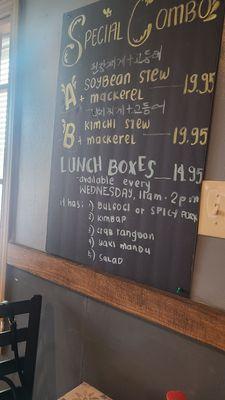 Special Combo
된장찌개+고등어
A Soybean Stew 19.95
+ mackerel
김치찌개+고등어
B Kimchi Stew
+ mackerel 19.95
Lunch Boxes 14.95
available every
Wednesday, 11am-2pm
it has: 1) Bulgogi or Spicy Pork
2) Kimbap
3) crab rangoon
4) yaki mandu
5) salad